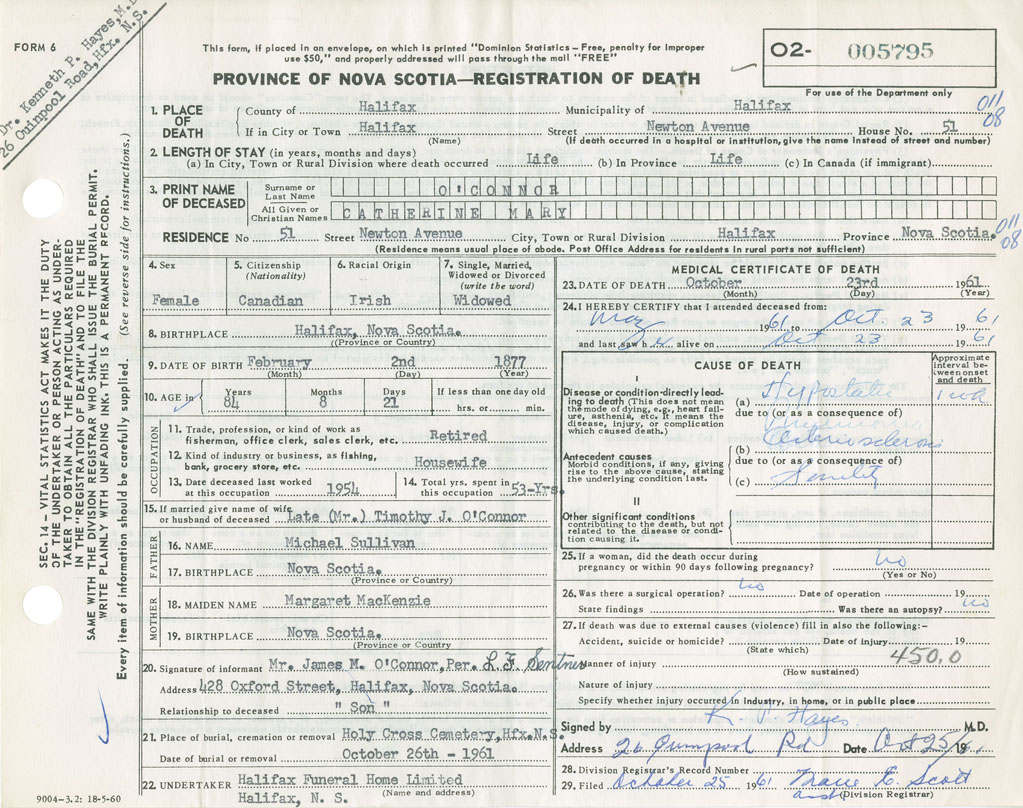 FORM 6
Dr. Kenneth P. Hayes, M.D.
26 Quinpool Road, Hfx. N.S.
This form, if placed in an envelope, on which is printed "Dominion Statistics – Free, penalty for improper
use $50," and properly addressed will pass through the mail "FREE"
PROVINCE OF NOVA SCOTIA—REGISTRATION OF DEATH
O2- 005795
For use of the Department only
SEC. 14 – VITAL STATISTICS ACT MAKES IT THE DUTY
OF THE UNDERTAKER OR PERSON ACTING AS UNDER-
TAKER TO OBTAIN ALL THE PARTICULARS REQUIRED
IN THE "REGISTRATION OF DEATH" AND TO FILE THE
SAME WITH THE DIVISION REGISTRAR WHO SHALL ISSUE THE BURIAL PERMIT.
WRITE PLAINLY WITH UNFADING INK. THIS IS A PERMANENT RECORD.
Every item of information should be carefully supplied. (See reverse side for instructions.)
1. PLACE OF DEATH
County of Halifax Municipality of Halifax
011
08
If in City or Town Halifax Street Newton Avenue House No. 51
(Name) (If death occurred in a hospital or institution, give the name instead of street and number)
2. LENGTH OF STAY (in years, months and days)
(a) In City, Town or Rural Division where death occurred Life (b) In Province Life (c) In Canada (if immigrant)
3. PRINT NAME OF DECEASED
Surname or Last Name O'CONNOR
All Given or Christian Names CATHERINE MARY
RESIDENCE No 51 Street Newton Avenue City, Town or Rural Division Halifax Province Nova Scotia.
011
08
(Residence means usual place of abode. Post Office Address for residents in rural parts not sufficient)
4. Sex
Female
5. Citizenship (Nationality)
Canadian
6. Racial Origin
Irish
7. Single, Married, Widowed or Divorced (write the word)
Widowed
8. BIRTHPLACE Halifax, Nova Scotia.
(Province or Country)
9. DATE OF BIRTH February 2nd 1877
(Month) (Day) (Year)
10. AGE in Years Months Days If less than one day old
84 8 21 hrs. or min.
OCCUPATION
11. Trade, profession, or kind of work as
fisherman, office clerk, sales clerk, etc. Retired
12. Kind of industry or business, as fishing,
bank, grocery store, etc. Housewife
13. Date deceased last worked
at this occupation 1954
14. Total yrs. spent in
this occupation 53-Yrs.
15. If married give name of wife
or husband of deceased Late (Mr.) Timothy J. O'Connor
FATHER
16. NAME Michael Sullivan
17. BIRTHPLACE Nova Scotia.
(Province or Country)
MOTHER
18. MAIDEN NAME Margaret MacKenzie
19. BIRTHPLACE Nova Scotia.
(Province or Country)
20. Signature of informant Mr. James M. O'Connor, Per. L.F. Sentner
Address 428 Oxford Street, Halifax, Nova Scotia.
Relationship to deceased " Son "
21. Place of burial, cremation or removal Holy Cross Cemetery, Hfx. N.S.
Date of burial or removal October 26th - 1961
22. UNDERTAKER Halifax Funeral Home Limited
Halifax, N. S. (Name and address)
9004-3.2: 18-5-60
MEDICAL CERTIFICATE OF DEATH
23. DATE OF DEATH October 23rd 1961
(Month) (Day) (Year)
24. I HEREBY CERTIFY that I attended deceased from:
May 1961 to Oct 23 1961
and last saw h alive on Oct 23 1961
CAUSE OF DEATH
Approximate interval between onset and death
I
Disease or condition directly lead-
ing to death (This does not mean
the mode of dying, e.g., heart fail-
ure, asthenia, etc. It means the
disease, injury, or complication
which caused death.)
(a) Hypostatic 1 wk
due to (or as a consequence of)
Pneumonia
Antecedent causes
Morbid conditions, if any, giving
rise to the above cause, stating
the underlying condition last.
(b) Arteriosclerosis
due to (or as a consequence of)
(c) Senility
II
Other significant conditions
contributing to the death, but not
related to the disease or condi-
tion causing it.
25. If a woman, did the death occur during
pregnancy or within 90 days following pregnancy? No
(Yes or No)
26. Was there a surgical operation? No Date of operation 19
State findings Was there an autopsy? No
27. If death was due to external causes (violence) fill in also the following:-
Accident, suicide or homicide? Date of injury 19
(State which)
450.0
Manner of injury
(How sustained)
Nature of injury
Specify whether injury occurred in industry, in home, or in public place
Signed by K. P Hayes M.D.
Address 26 Quinpool Rd Date Oct 25/1961
28. Division Registrar's Record Number
29. Filed October 25 1961 E. Scott
(Division Registrar)